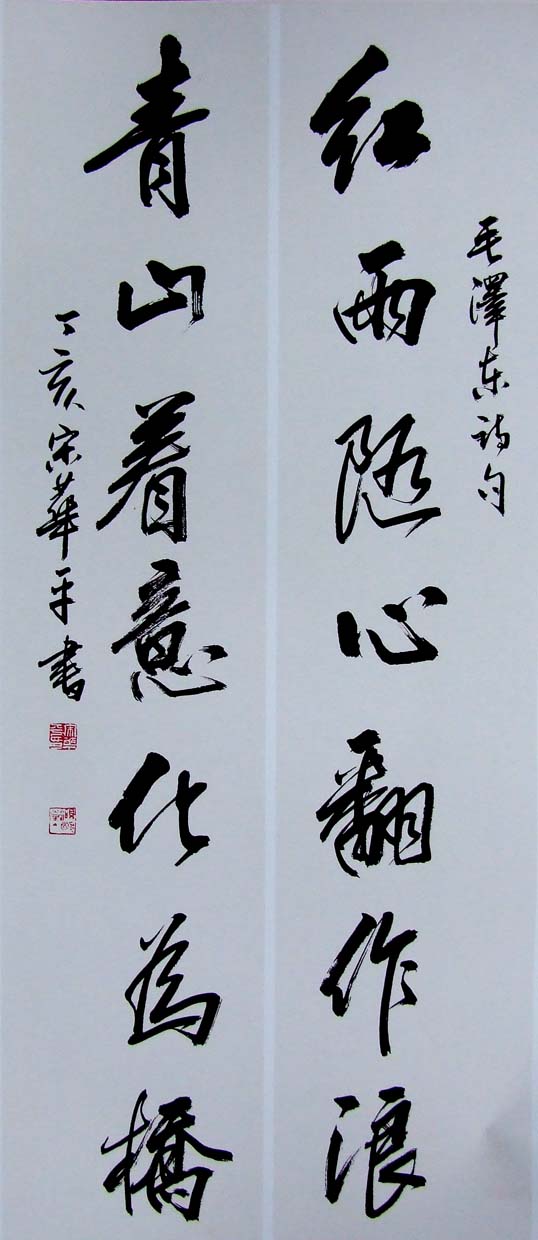 毛澤东诗句
红雨随心翻作浪
青山着意化為橋
丁亥宋華平書